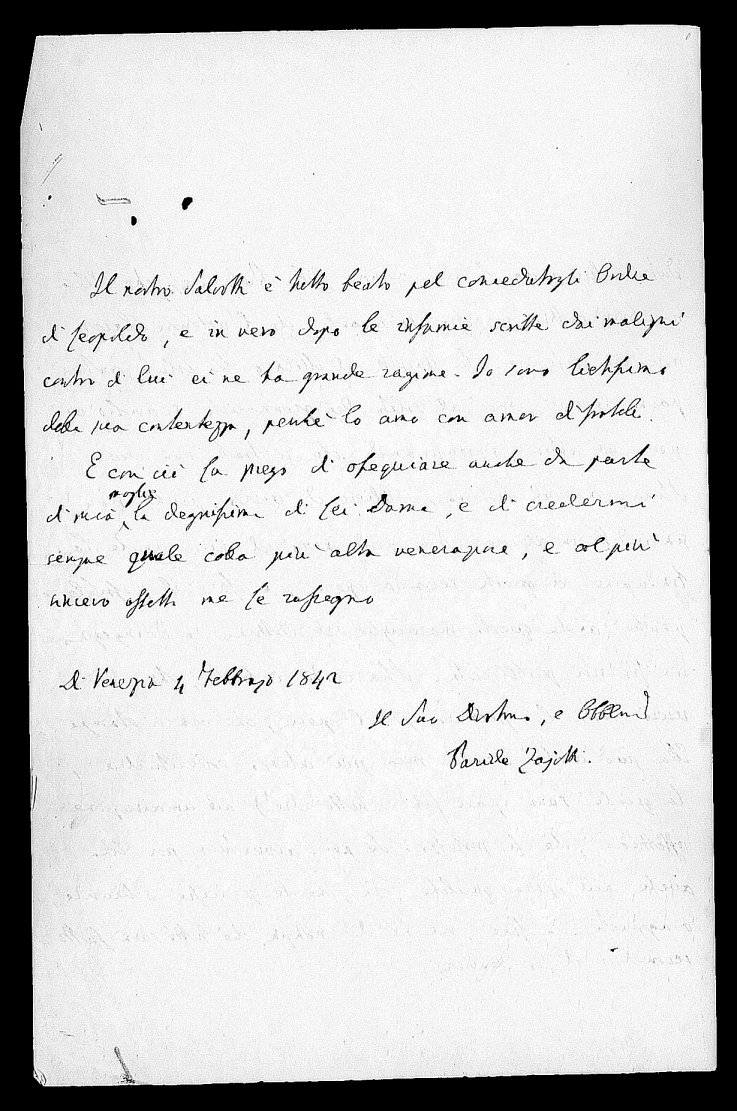 Il nostro Salvotti è tutto beato pel concedutogli Ordine
di Leopoldo, e in vero dopo le infamie scritte dai maligni
contro di lui ei ne ha grande ragione. Io sono lietissimo
della sua contentezza, perchè lo amo con amor di fratello.
E con ciò la prego di ossequiare anche da parte
di mia moglie la degnissima di Lei Dama, e di credermi
sempre quale colla più alta venerazione, e col più
sincero affetto me Le rassegno
Di Venezia 4 Febbrajo 1842
Il Suo Devotmo, e Obblmo
Paride Zajotti.